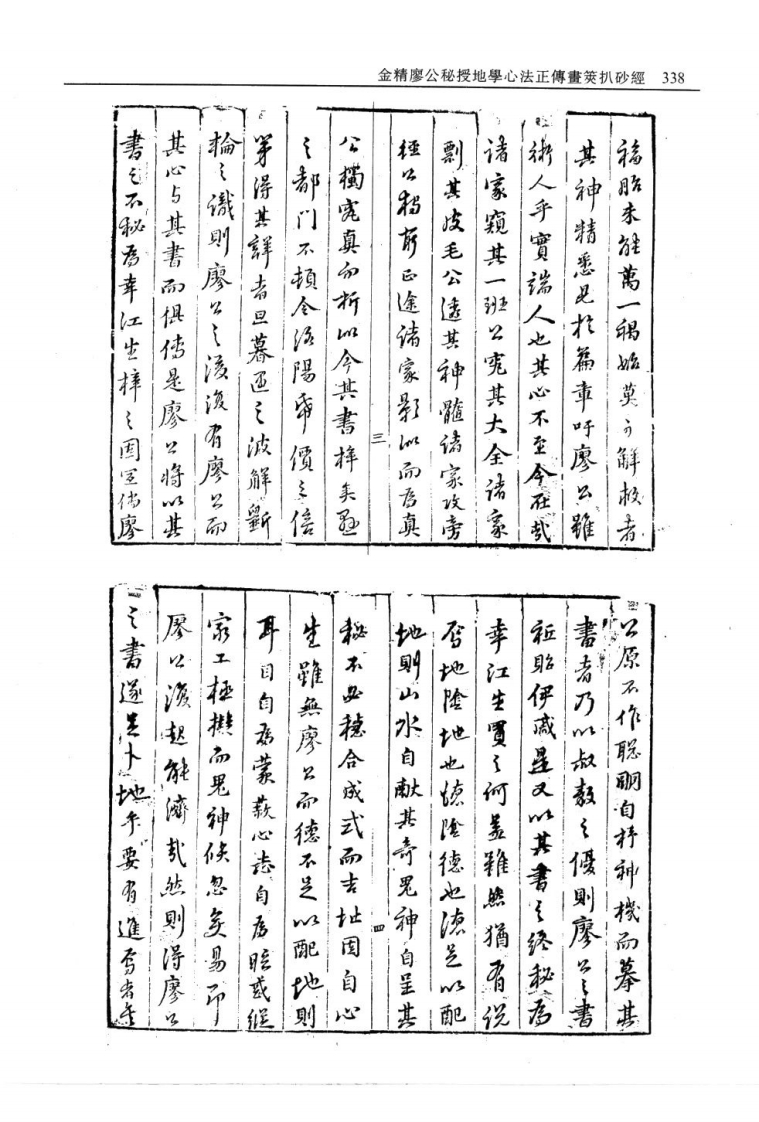 金精廖公秘授地學心法正傳畫筴扒砂經 338
福貽未能萬一禍始莫可解救者
其神精悉見於篇章吁廖公雖
術人乎實端人也其心不至今在哉
諸家窺其一班公究其大全諸家
剽其皮毛公透其神髓諸家攻旁
徑公獨窮正途諸家影似而為真
三
公獨究真而析似今其書梓矣懸
之都門不頓令洛陽帋價之倍
第得其詳者旦暮遇之波解斵
輪之識則廖公之後復有廖公而
其心与其書而俱傳是廖公將以其
書之不秘為幸江生梓之固宜倘廖
公原不作聰明自抒神機而摹其
書者乃以叔敖之優則廖公之書
秪貽伊戚是又以其書之終秘為
幸江生買之何益雖然猶有說
焉地陰地也德陰德也德足以配
地則山水自獻其奇鬼神自呈其
四
秘不必穩合成式而吉址固自心
生雖無廖公而德不足以配地則
耳目自為蒙蔽心志自為眩惑縱
家工極擬而鬼神倏忽變易即
廖公復起能濟哉然則得廖公
之書遂足卜地乎要有進焉者矣